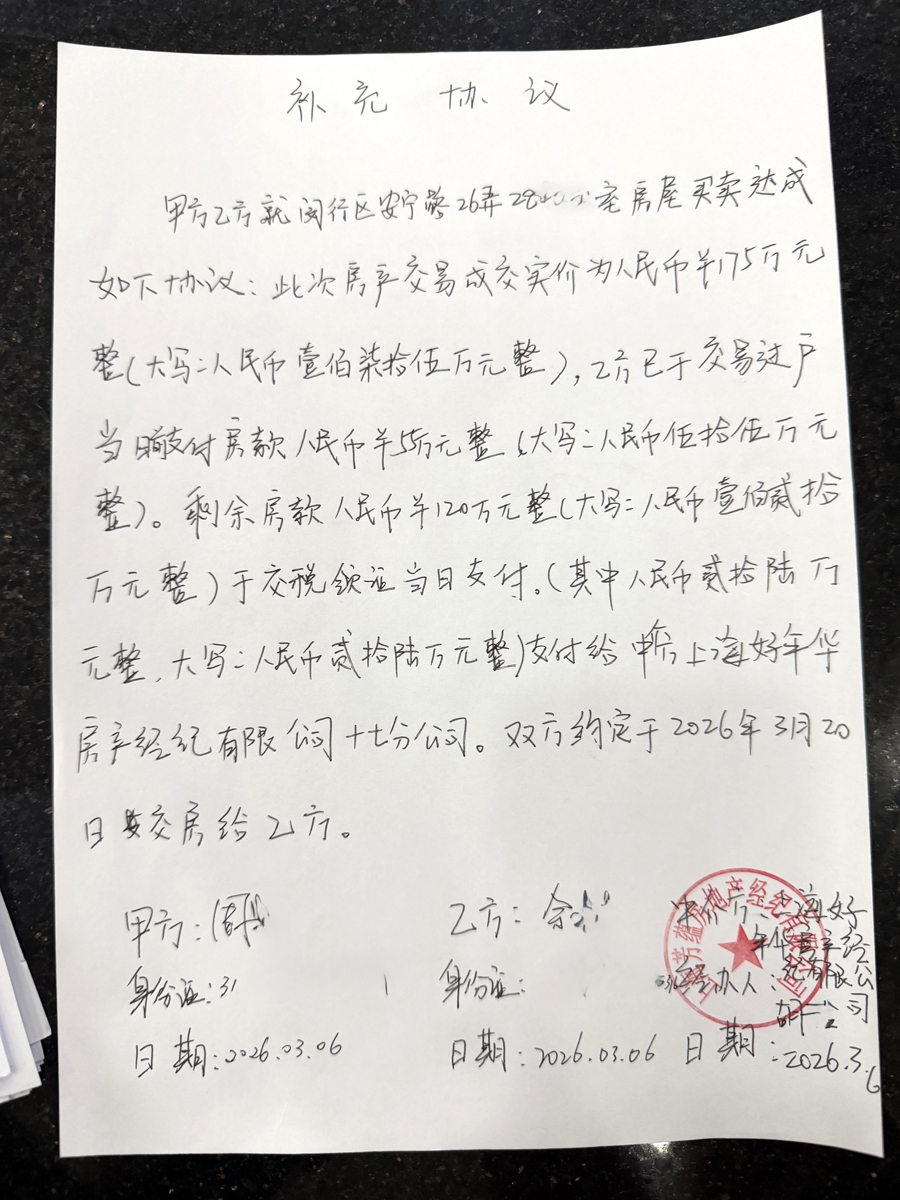 补充协议
甲方乙方就闵行区安宁路26弄28 室房屋买卖达成
如下协议：此次房产交易成交实价为人民币￥175万元
整（大写：人民币壹佰柒拾伍万元整），乙方已于交易过户
当日前支付房款人民币￥55万元整（大写：人民币伍拾伍万元
整）。剩余房款人民币￥120万元整（大写：人民币壹佰贰拾
万元整）于交税领证当日支付。（其中人民币贰拾陆万
元整，大写：人民币贰拾陆万元整）支付给 上海好年华
房产经纪有限公司十七分公司。双方约定于2026年3月20
日 交房给乙方。
甲方：周
身份证：31
日期：2026.03.06
乙方：余
身份证：
日期：2026.03.06
中介方：上海好
年华房产经
纪有限公
司
经办人：
日期：2026.3.6
上海芳蕴房地产经纪有限公司